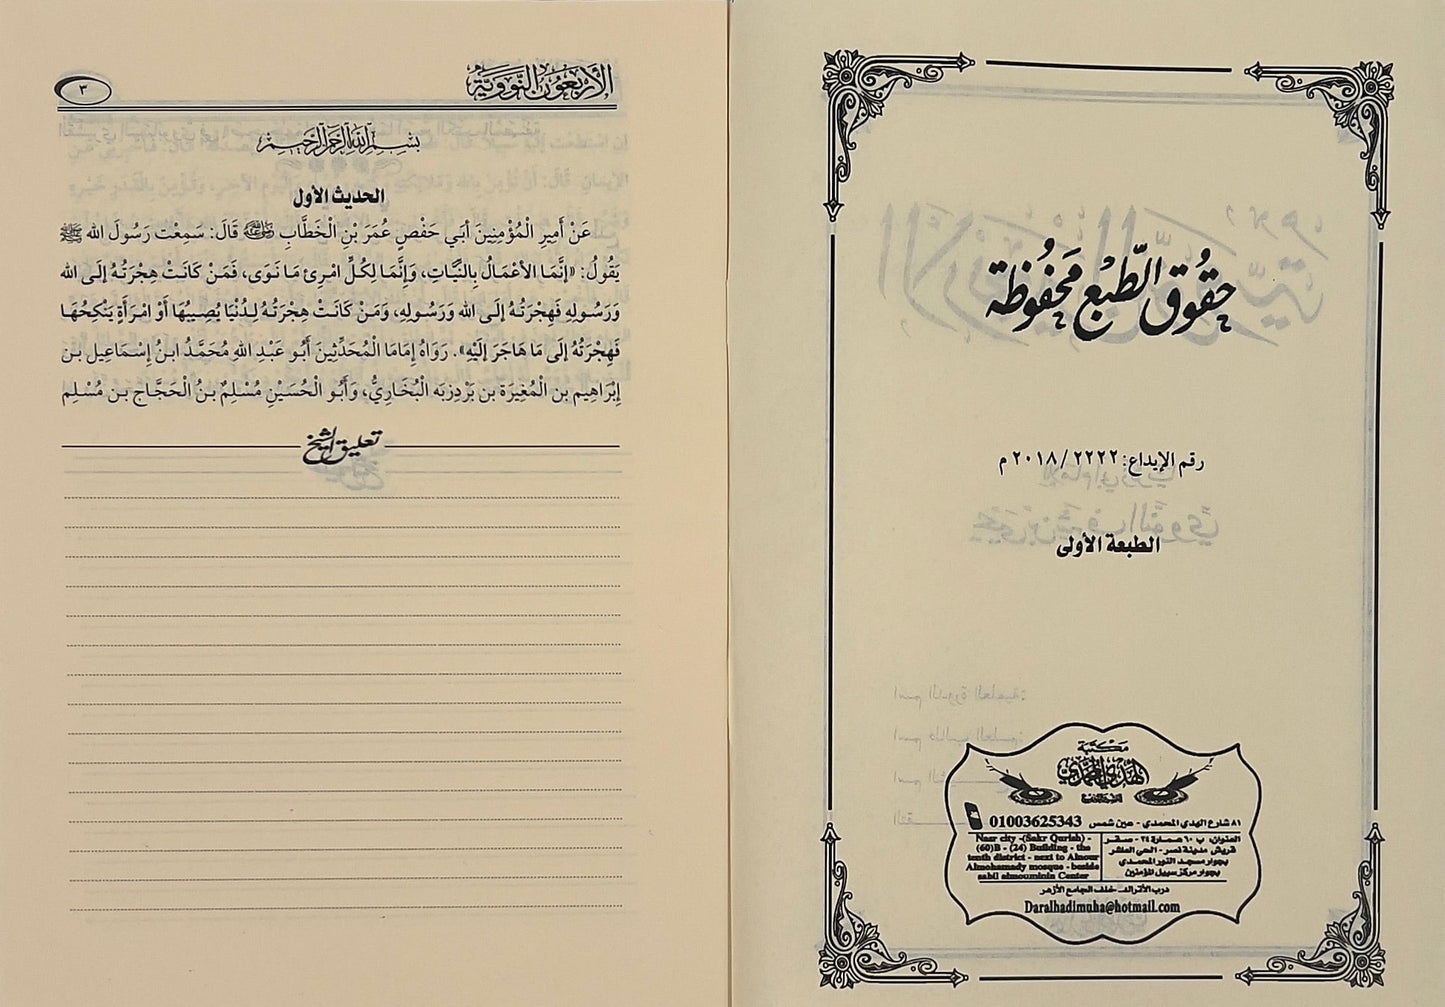 حقُوق الطّبع مَحفُوظة
رقم الإيداع: ٢٢٢٢/ ٢٠١٨ م
الطبعة الأولى
مكتبة
الهدي المحمدي
01003625343 ٨١ شارع الهدى المحمدى - عين شمس
العنوان: ب ٦٠ عمارة ٢٤ - صقر
قريش مدينة نصر - الحى العاشر
بجوار مسجد النور المحمدى
بجوار مركز سبيل المؤمنين
Nasr city -(Sakr Qurish) -
(60)B - (24) Building - the
tenth district - next to Alnour
Almohamady mosque - beside
sabil almouminin Center
درب الأتراك - خلف الجامع الأزهر
Daralhadimuha@hotmail.com
الأربعُون النّوويّة
٣
بسم الله الرحمن الرحيم
الحديث الأول
عَنْ أَمِيرِ الْمُؤْمِنِينَ أَبِي حَفْصٍ عُمَرَ بْنِ الْخَطَّابِ رضي الله عنه قَالَ: سَمِعْتُ رَسُولَ الله ﷺ
يَقُولُ: «إنَّمَا الأعْمَالُ بِالنِّيَّاتِ، وَإِنَّمَا لِكُلِّ امْرِئٍ مَا نَوَى، فَمَنْ كَانَتْ هِجْرَتُهُ إلَى الله
وَرَسُولِهِ فَهِجْرَتُهُ إلَى الله وَرَسُولِهِ، وَمَنْ كَانَتْ هِجْرَتُهُ لِدُنْيَا يُصِيبُهَا أَوْ امْرَأَةٍ يَنْكِحُهَا
فَهِجْرَتُهُ إلَى مَا هَاجَرَ إلَيْهِ». رَوَاهُ إِمَامَا الْمُحَدِّثِينَ أَبُو عَبْدِ اللهِ مُحَمَّدُ ابنُ إِسْمَاعِيل بن
إِبْرَاهِيم بن الْمُغِيرَة بن بَرْدِزبَه الْبُخَارِيُّ، وَأَبُو الْحُسَيْنِ مُسْلِمٌ بنُ الْحَجَّاج بن مُسْلِم
تعليق الشيخ